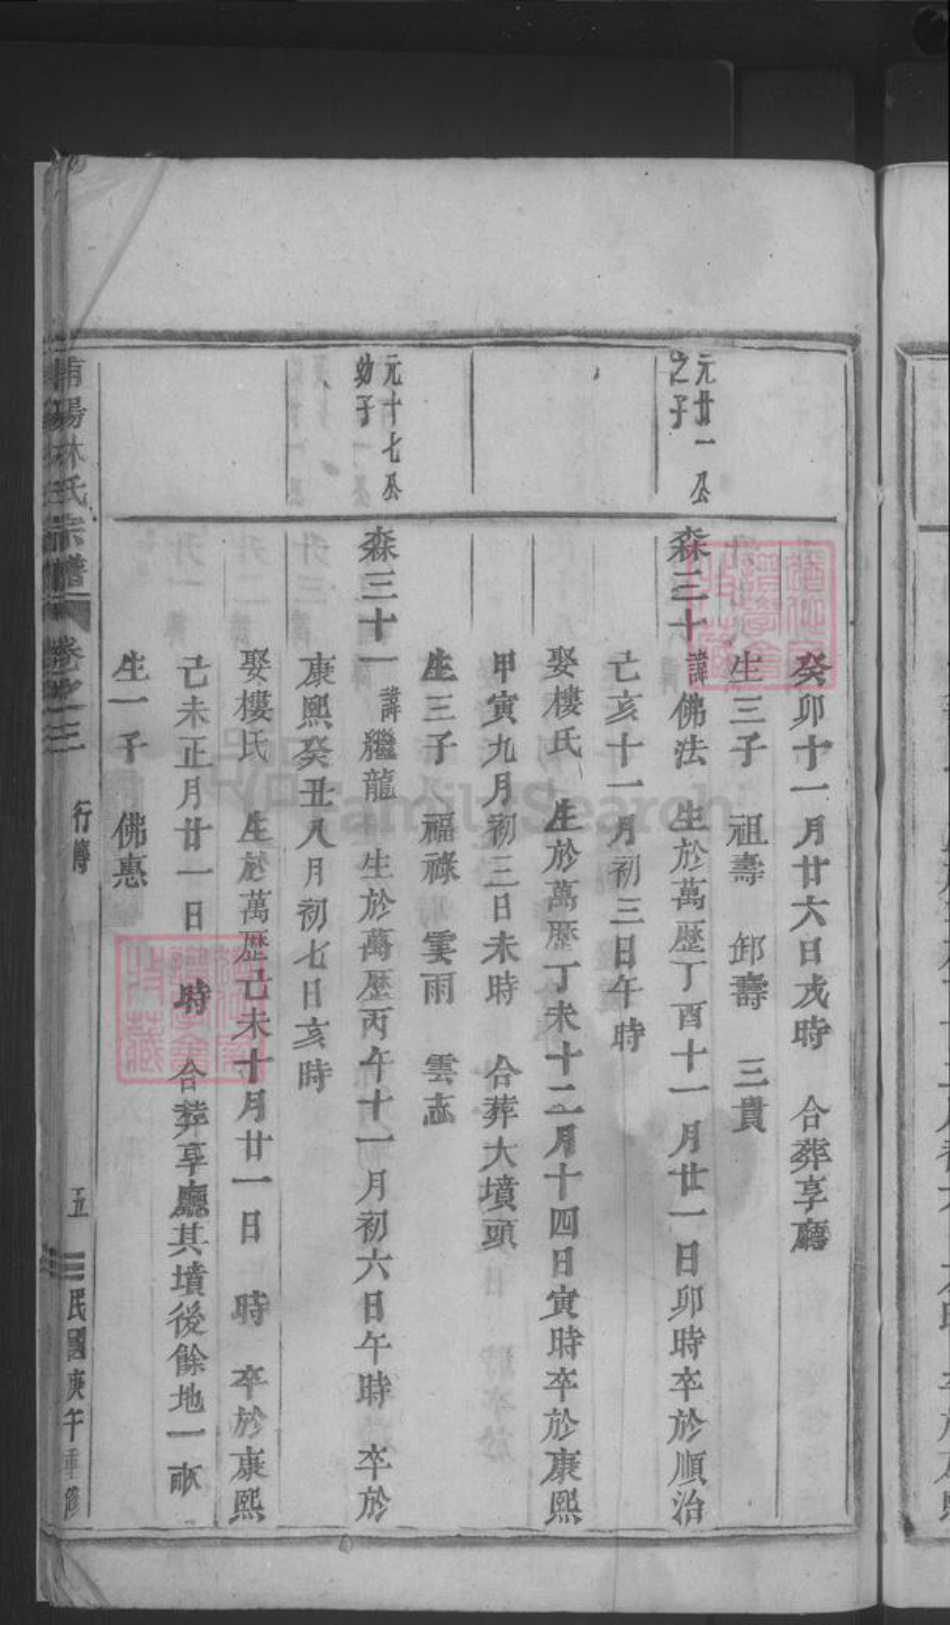 癸卯十一月廿六日戌時　合葬享廳
生三子　祖壽　卸壽　三貴
元廿一公之子
森三十　諱佛法　生於萬歷丁酉十一月廿一日卯時卒於順治
己亥十一月初三日午時
娶樓氏　生於萬歷丁未十二月十四日寅時卒於康熙
甲寅九月初三日未時　合葬大墳頭
生三子　福祿　雲雨　雲志
元十七公幼子
森三十一　諱繼龍　生於萬歷丙午十一月初六日午時　卒於
康熙癸丑八月初七日亥時
娶樓氏　生於萬歷己未十月廿一日　時　卒於康熙
己未正月廿一日　時　合葬享廳其墳後餘地一畝
生一子　佛惠
陽林氏宗譜　卷之三　行傳　五　民國庚午重修
收藏
FamilySearch